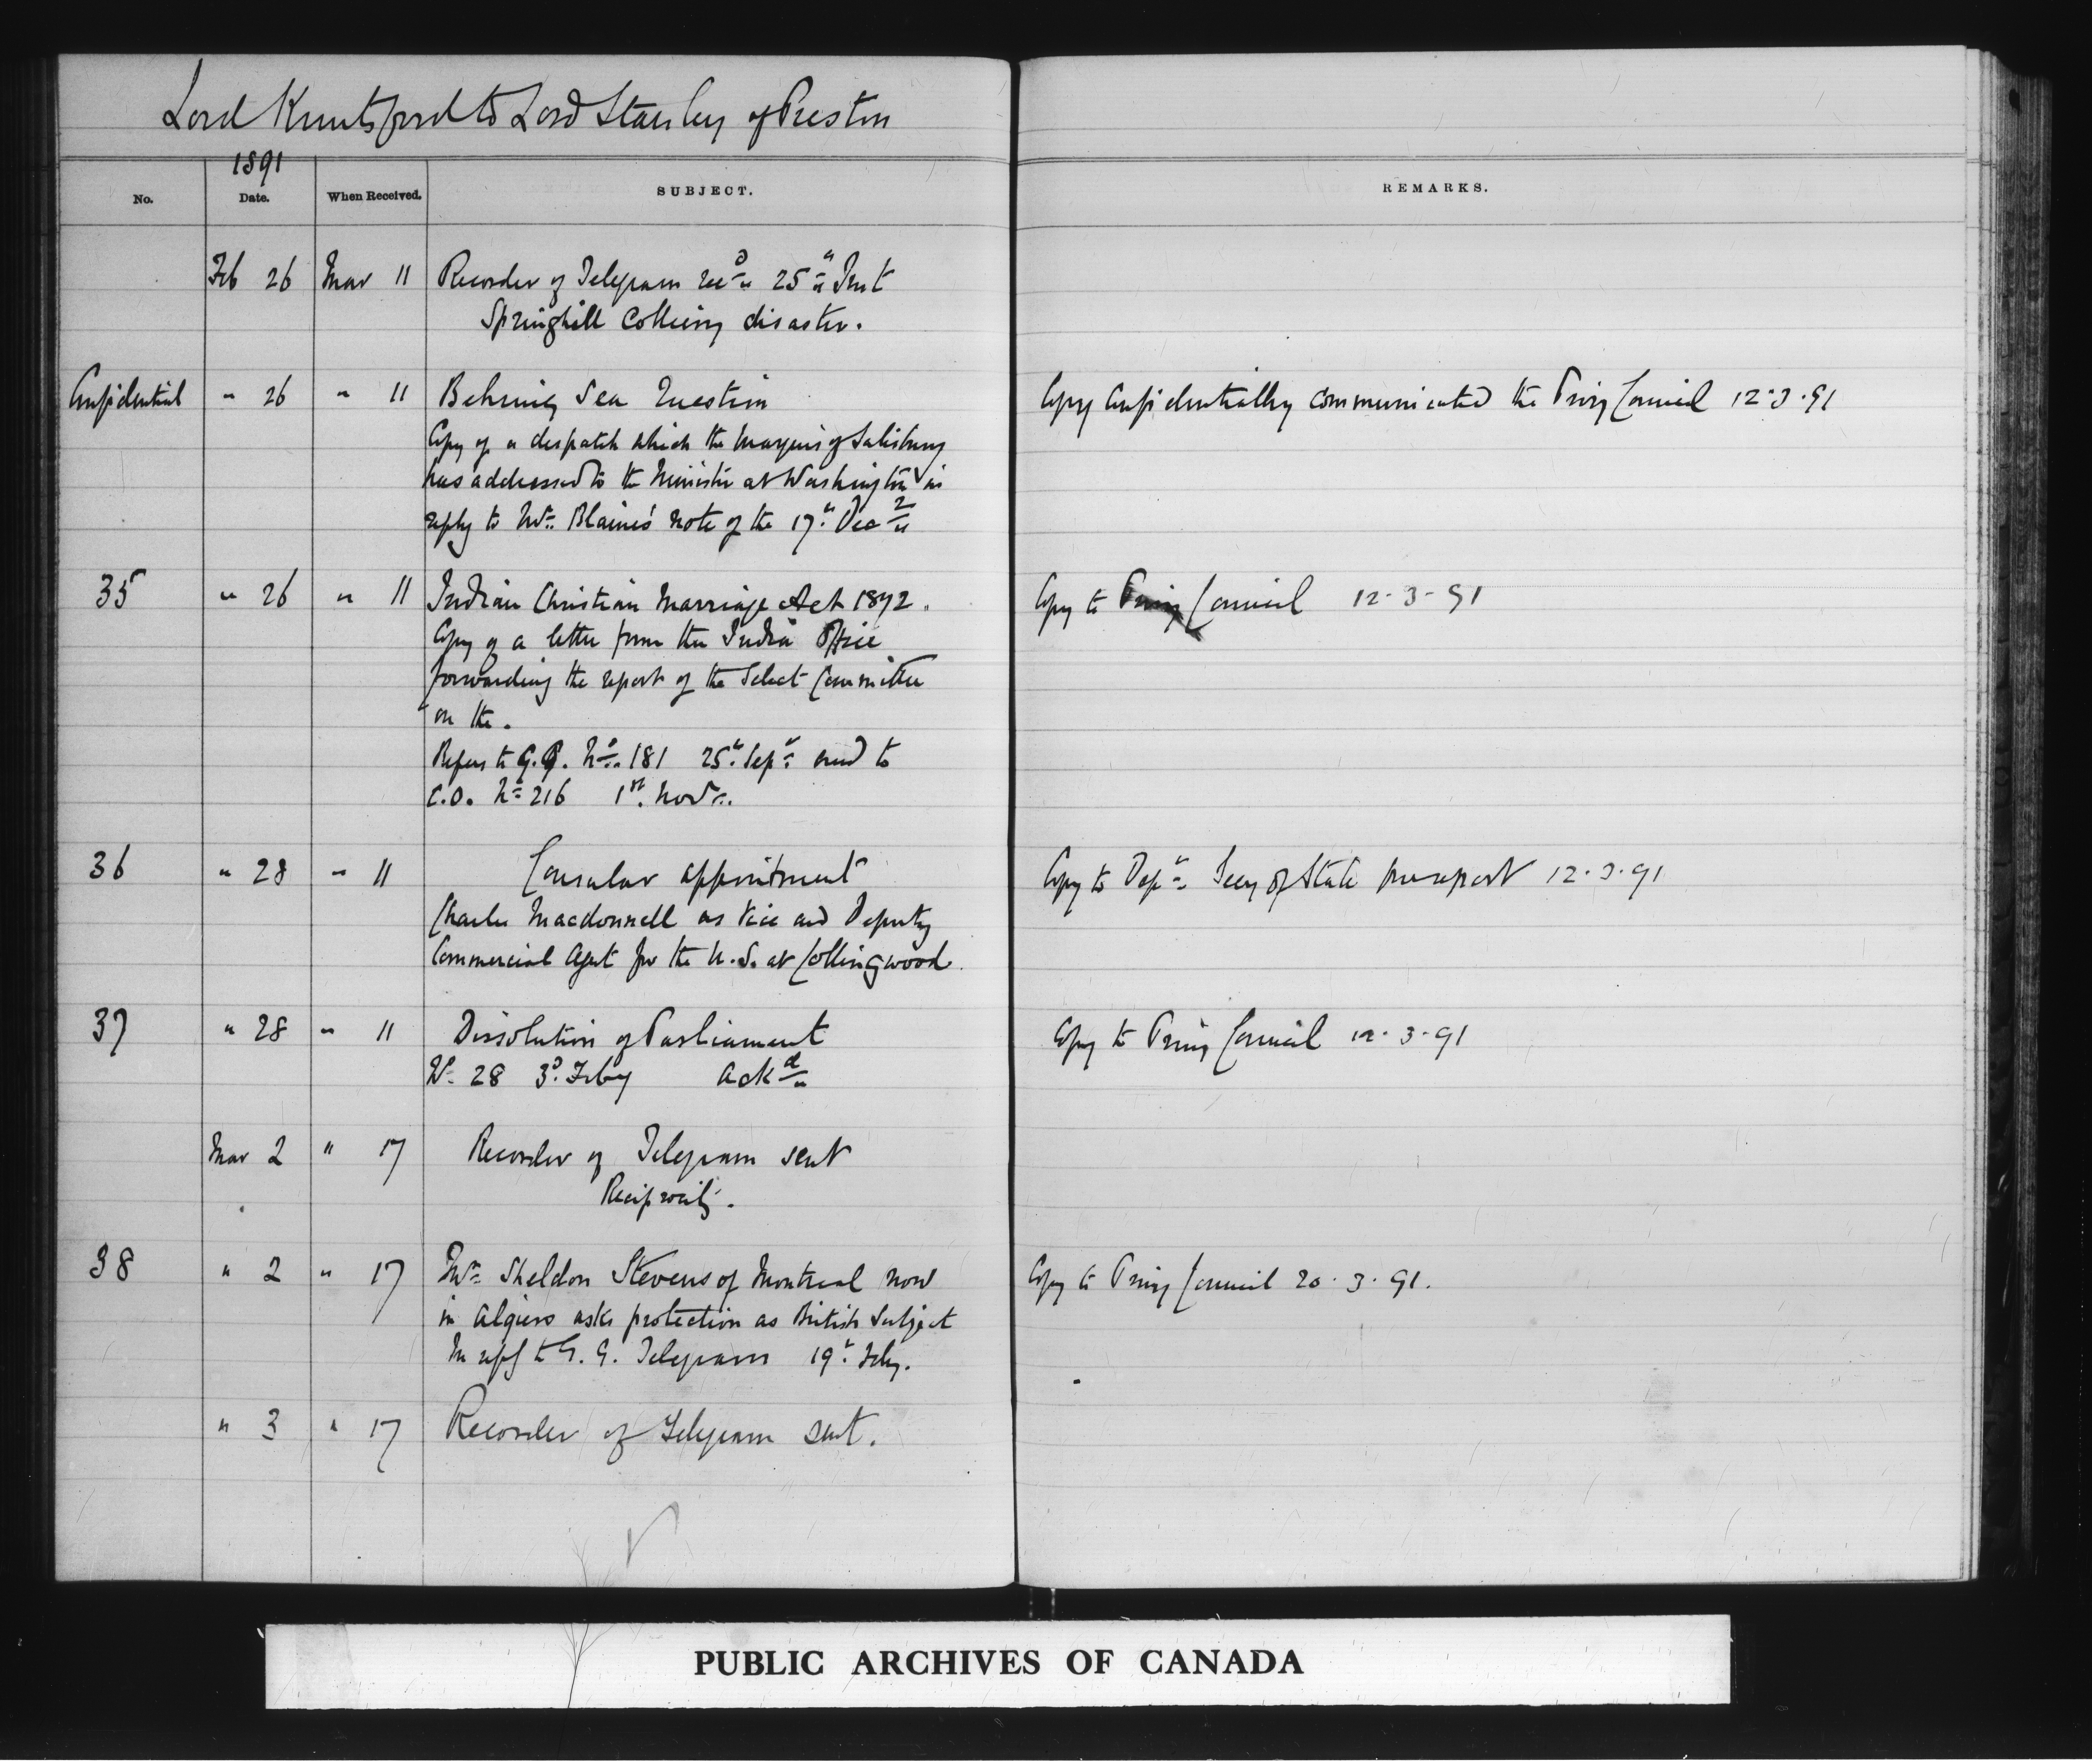 Lord Knutsford to Lord Stanley of Preston
1891
No. Date. When Received. SUBJECT. REMARKS.
Feb 26 Mar 11 Recorder of Telegram recd 25th Inst
Springhill Colliery disaster.
Confidential " 26 " 11 Behring Sea Question Copy Confidentially communicated the Privy Council 12.3.91
Copy of a despatch which the Marquis of Salisbury
has addressed to the Minister at Washington in
reply to Mr. Blaine's note of the 17th Decr
35 " 26 " 11 Indian Christian Marriage Act 1872. Copy to Privy Council 12-3-91
Copy of a letter from the India Office
forwarding the report of the Select Committee
on the.
Refers to G.G. No. 181 25th Sepr and to
C.O. No 216 1st. Novr.
36 " 28 " 11 Consular appointment Copy to Depr Secy of State for report 12.3.91
Charles Macdonnell as Vice and Deputy
Commercial Agent for the U.S. at Collingwood.
37 " 28 " 11 Dissolution of Parliament Copy to Privy Council 12.3.91
No 28 3d. Feby Ackd
Mar 2 " 17 Recorder of Telegram sent
Reciprocity.
38 " 2 " 17 Mr Sheldon Stevens of Montreal now Copy to Privy Council 20.3.91.
in Algiers asks protection as British Subject
In reply to G.G. Telegram 19th Feby.
" 3 " 17 Recorder of Telegram sent.
PUBLIC ARCHIVES OF CANADA